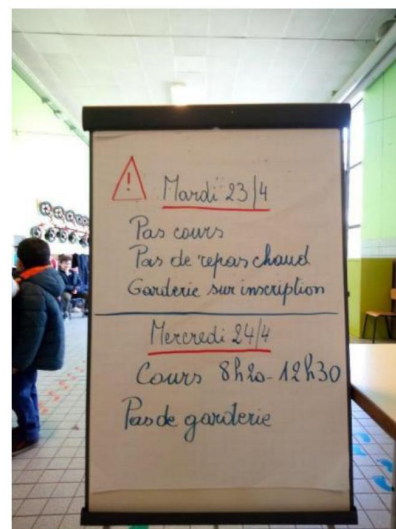 !
Mardi 23/4
Pas cours
Pas de repas chaud
Garderie sur inscription
Mercredi 24/4
Cours 8h20-12h30
Pas de garderie